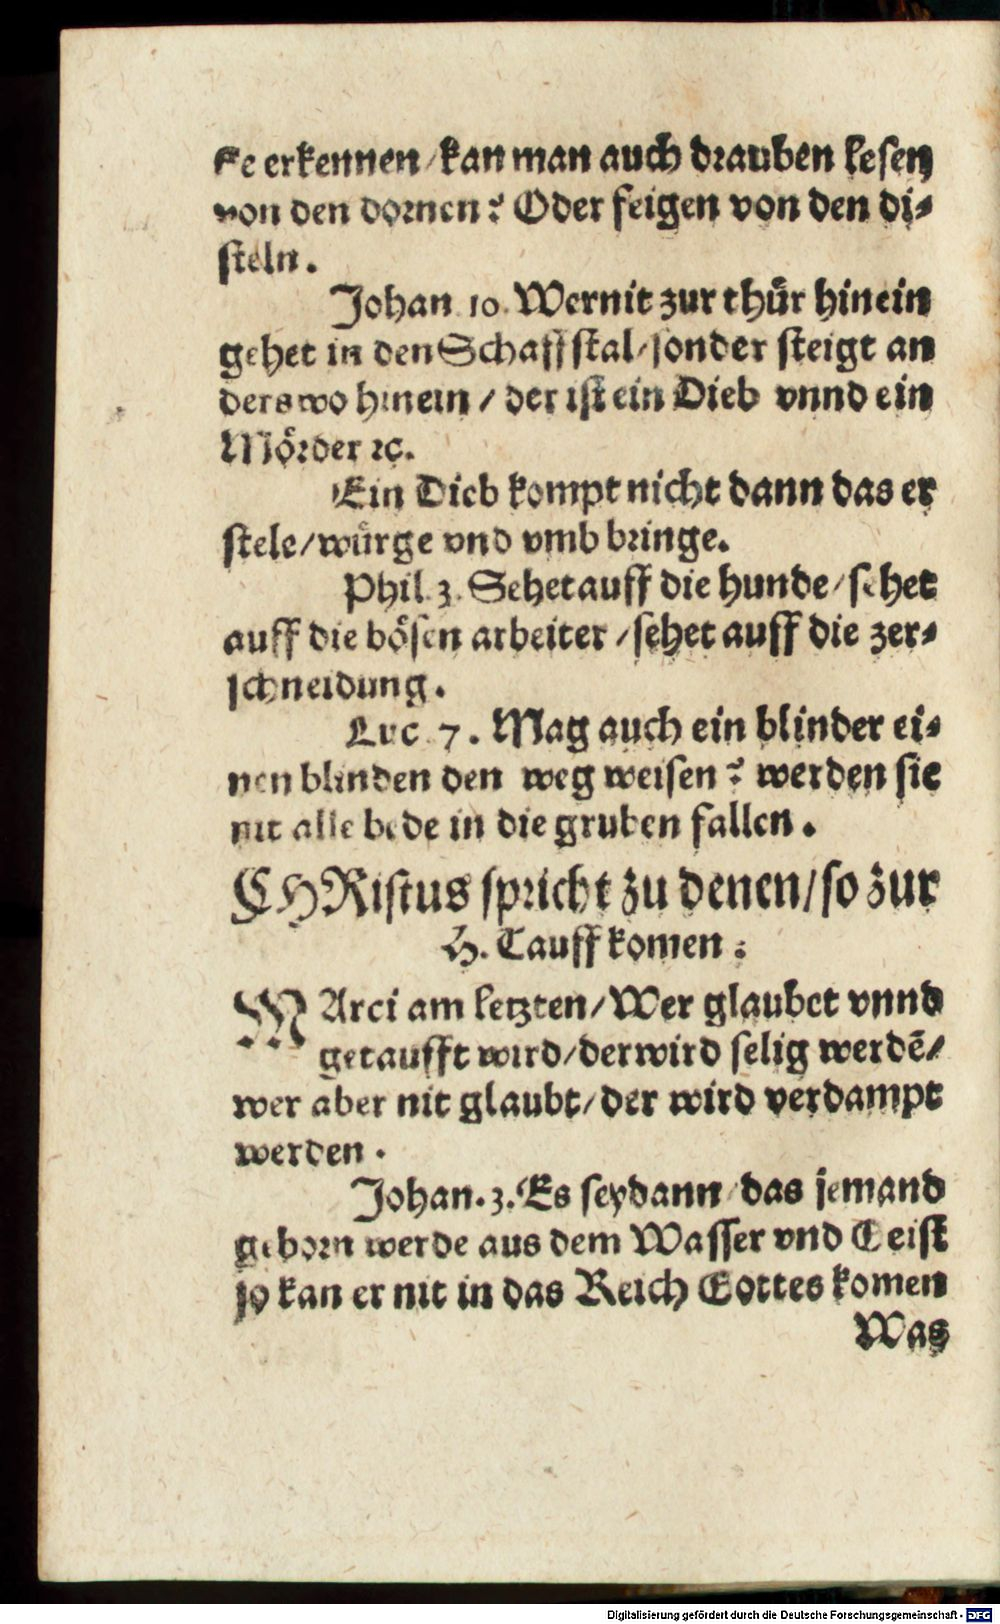 ſie erkennen/kan man auch drauben leſen
von den dornen? Oder feigen von den di⸗
ſteln.
Johan 10. Wer nit zur thuͤr hinein
gehet in den Schaffſtal/ſonder ſteigt an
derswo hinein/der iſt ein Dieb vnnd ein
Moͤrder ꝛc.
Ein Dieb kompt nicht dann das er
ſtele/wuͤrge vnd vmb bringe.
Phil 3. Sehet auff die hunde/ſehet
auff die boͤſen arbeiter/ſehet auff die zer⸗
ſchneidung.
Luc 7. Mag auch ein blinder ei⸗
nen blinden den weg weiſen? werden ſie
nit alle bede in die gruben fallen.
CHRiſtus ſpricht zu denen/ſo zur
H. Tauff komen:
MArci am letzten/Wer glaubet vnnd
getaufft wird/der wird ſelig werdē/
wer aber nit glaubt/der wird verdampt
werden.
Johan. 3. Es ſey dann/das jemand
geborn werde aus dem Waſſer vnd Geiſt
ſo kan er nit in das Reich Gottes komen
Was
Digitalisierung gefördert durch die Deutsche Forschungsgemeinschaft - DFG